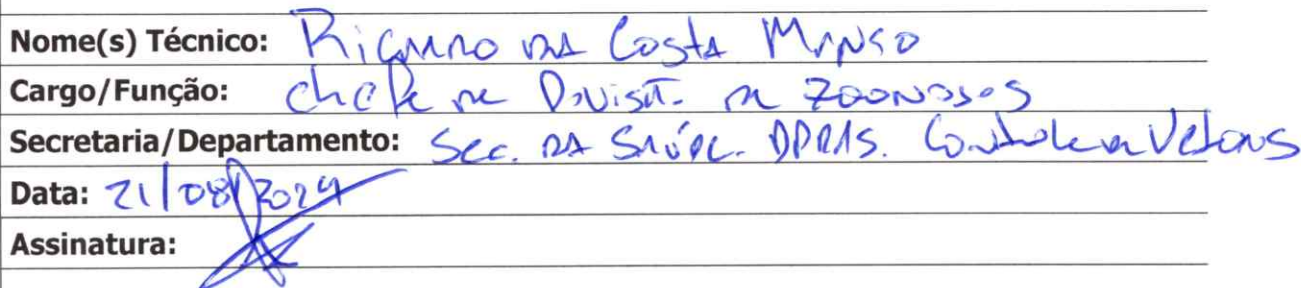 Nome(s) Técnico: Ricardo da Costa Manso
Cargo/Função: Chefe de Divisão de Zoonoses
Secretaria/Departamento: Sec. da Saúde. Controle de Vetores
Data: 21/08/2024
Assinatura: